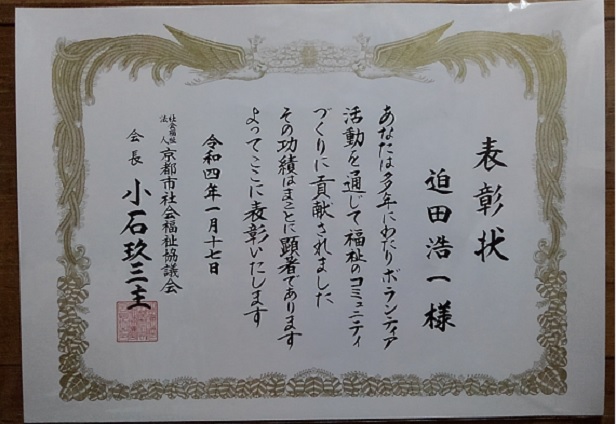 表彰状
迫田浩一様
あなたは多年にわたりボランティア
活動を通じて福祉のコミュニティ
づくりに貢献されました
その功績はまことに顕著であります
よってここに表彰いたします
令和四年一月十七日
社会福祉法人京都市社会福祉協議会
会長 小石玖三主